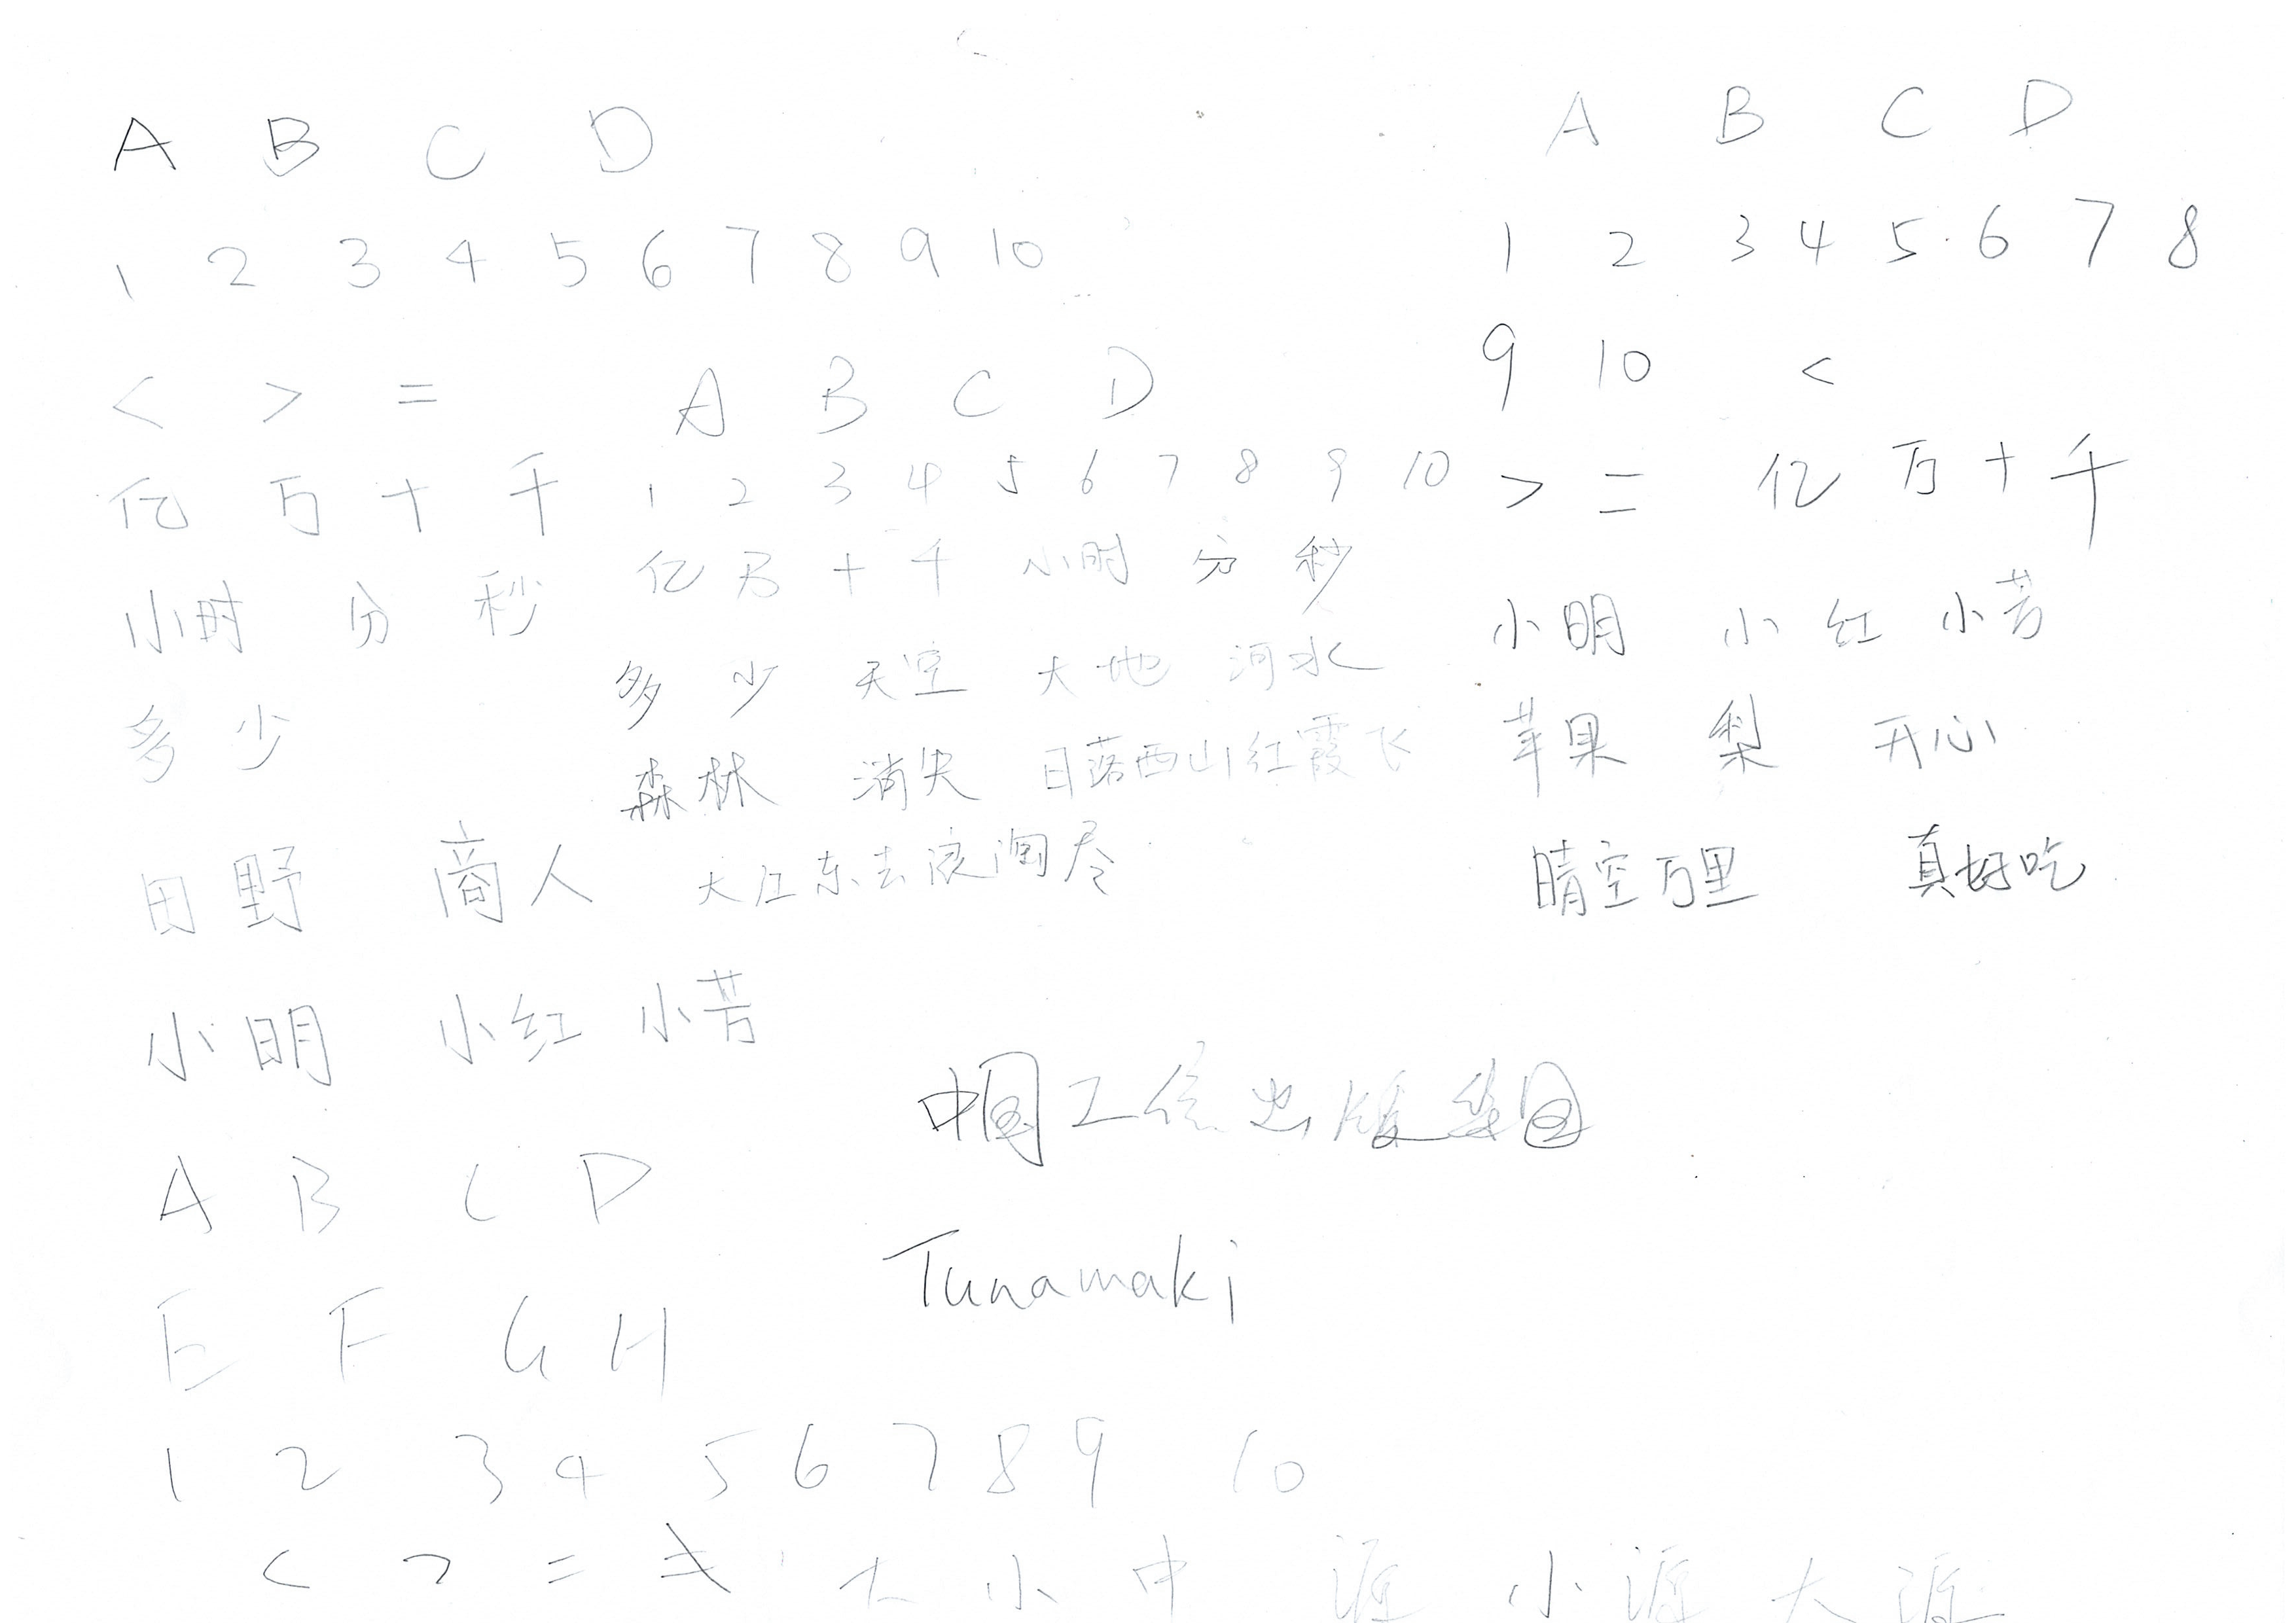 A B C D
1 2 3 4 5 6 7 8 9 10
< > =
亿 万 十 千
小时 分 秒
多 少
田野 商人
小明 小红 小芳
A B C D
1 2 3 4 5 6 7 8 9 10
亿 万 十 千 小时 分 秒
多 少 天空 大地 河水
森林 消失 日落西山红霞飞
大江东去浪淘尽
A B C D
1 2 3 4 5 6 7 8
9 10 <
> = 亿 万 十 千
小明 小红 小芳
苹果 梨 开心
晴空万里 真好吃
中国工信出版集团
Tunamaki
A B C D
E F G H
1 2 3 4 5 6 7 8 9 10
< > = ≠ 大 小 中 源 小源 大源